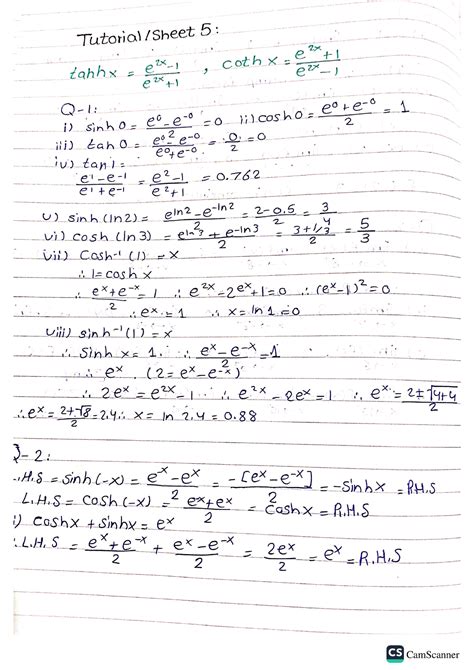 Tutorial/Sheet 5:
tahhx = e^2x-1/e^2x+1 , cothx = e^2x+1/e^2x-1
Q-1:
i) sinh0 = e^0-e^-0/2 = 0 ii) cosh0 = e^0+e^-0/2 = 1
iii) tan0 = e^0-e^-0/e^0+e^-0 = 0/2 = 0
iv) tan1 =
e^1-e^-1/e^1+e^-1 = e^2-1/e^2+1 = 0.762
v) sinh(ln2) = e^ln2-e^-ln2/2 = 2-0.5/2 = 3/4
vi) cosh(ln3) = e^ln3+e^-ln3/2 = 3+1/3/2 = 5/3
vii) Cosh^-1(1) = x
∴ 1=coshx
∴ e^x+e^-x/2 = 1 ∴ e^2x-2e^x+1=0 ∴ (e^x-1)^2=0
∴ e^x=1 ∴ x=ln1=0
viii) sinh^-1(1)=x
∴ Sinhx=1 ∴ e^x-e^-x/2 = 1
∴ e^x. (2=e^x-e^-x)
∴ 2e^x=e^2x-1 ∴ e^2x-2e^x=1 ∴ e^x=2±√4+4/2
∴ e^x=2+√8/2=2.4 ∴ x=ln2.4=0.88
Q-2:
L.H.S = sinh(-x) = e^-x-e^x/2 = -[e^x-e^-x]/2 = -sinhx = R.H.S
L.H.S = cosh(-x) = e^x+e^x/2 = coshx = R.H.S
i) coshx + sinhx = e^x
∴ L.H.S = e^x+e^-x/2 + e^x-e^-x/2 = 2e^x/2 = e^x = R.H.S
CS CamScanner